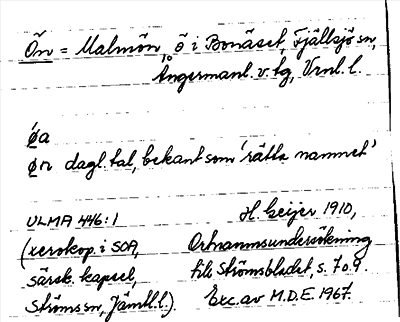 Ön = Malmön, ö i Bonäset, Fjällsjö sn,
Ångermanl. v. tg, Vrnl. l.
ǿa
øn dagl. tal, bekant som 'rätta namnet'
ULMA 446:1 H. Geijer 1910,
(xerokop. i SOA, Ortnamnsundersökning
särsk. kapsel, till Strömsbladet, s. 7 o. 9.
Ströms sn, Jämtl. l.). Exc. av M.D.E. 1967.